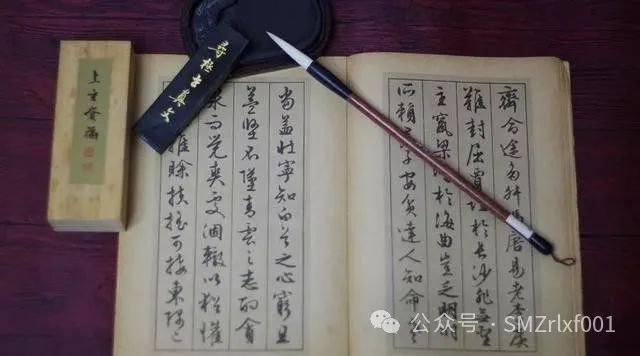 齊命途多舛馮唐易老李廣
難封屈賈誼於長沙非無聖
主竄梁於海曲豈乏明
所賴子安貧達人知命
當益壯寧知白首之心窮且
益堅不墜青雲之志酌貪
泉而覺爽處涸轍以猶懽
雖賒扶搖可接東隅已
公众号 · SMZrlxf001